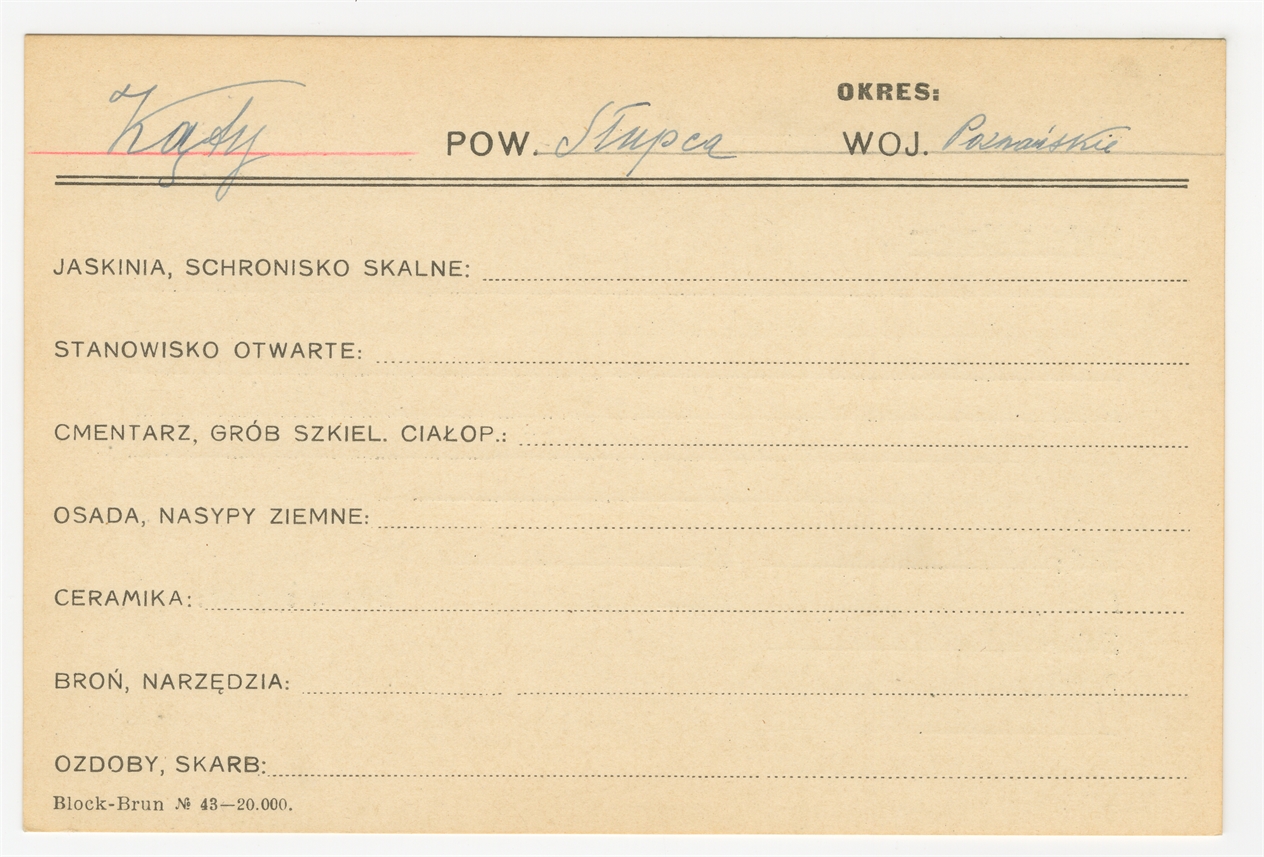 OKRES:
Kąty POW. Słupca WOJ. Poznańskie
JASKINIA, SCHRONISKO SKALNE:
STANOWISKO OTWARTE:
CMENTARZ, GRÓB SZKIEL. CIAŁOP.:
OSADA, NASYPY ZIEMNE:
CERAMIKA:
BROŃ, NARZĘDZIA:
OZDOBY, SKARB:
Block-Brun № 43—20.000.